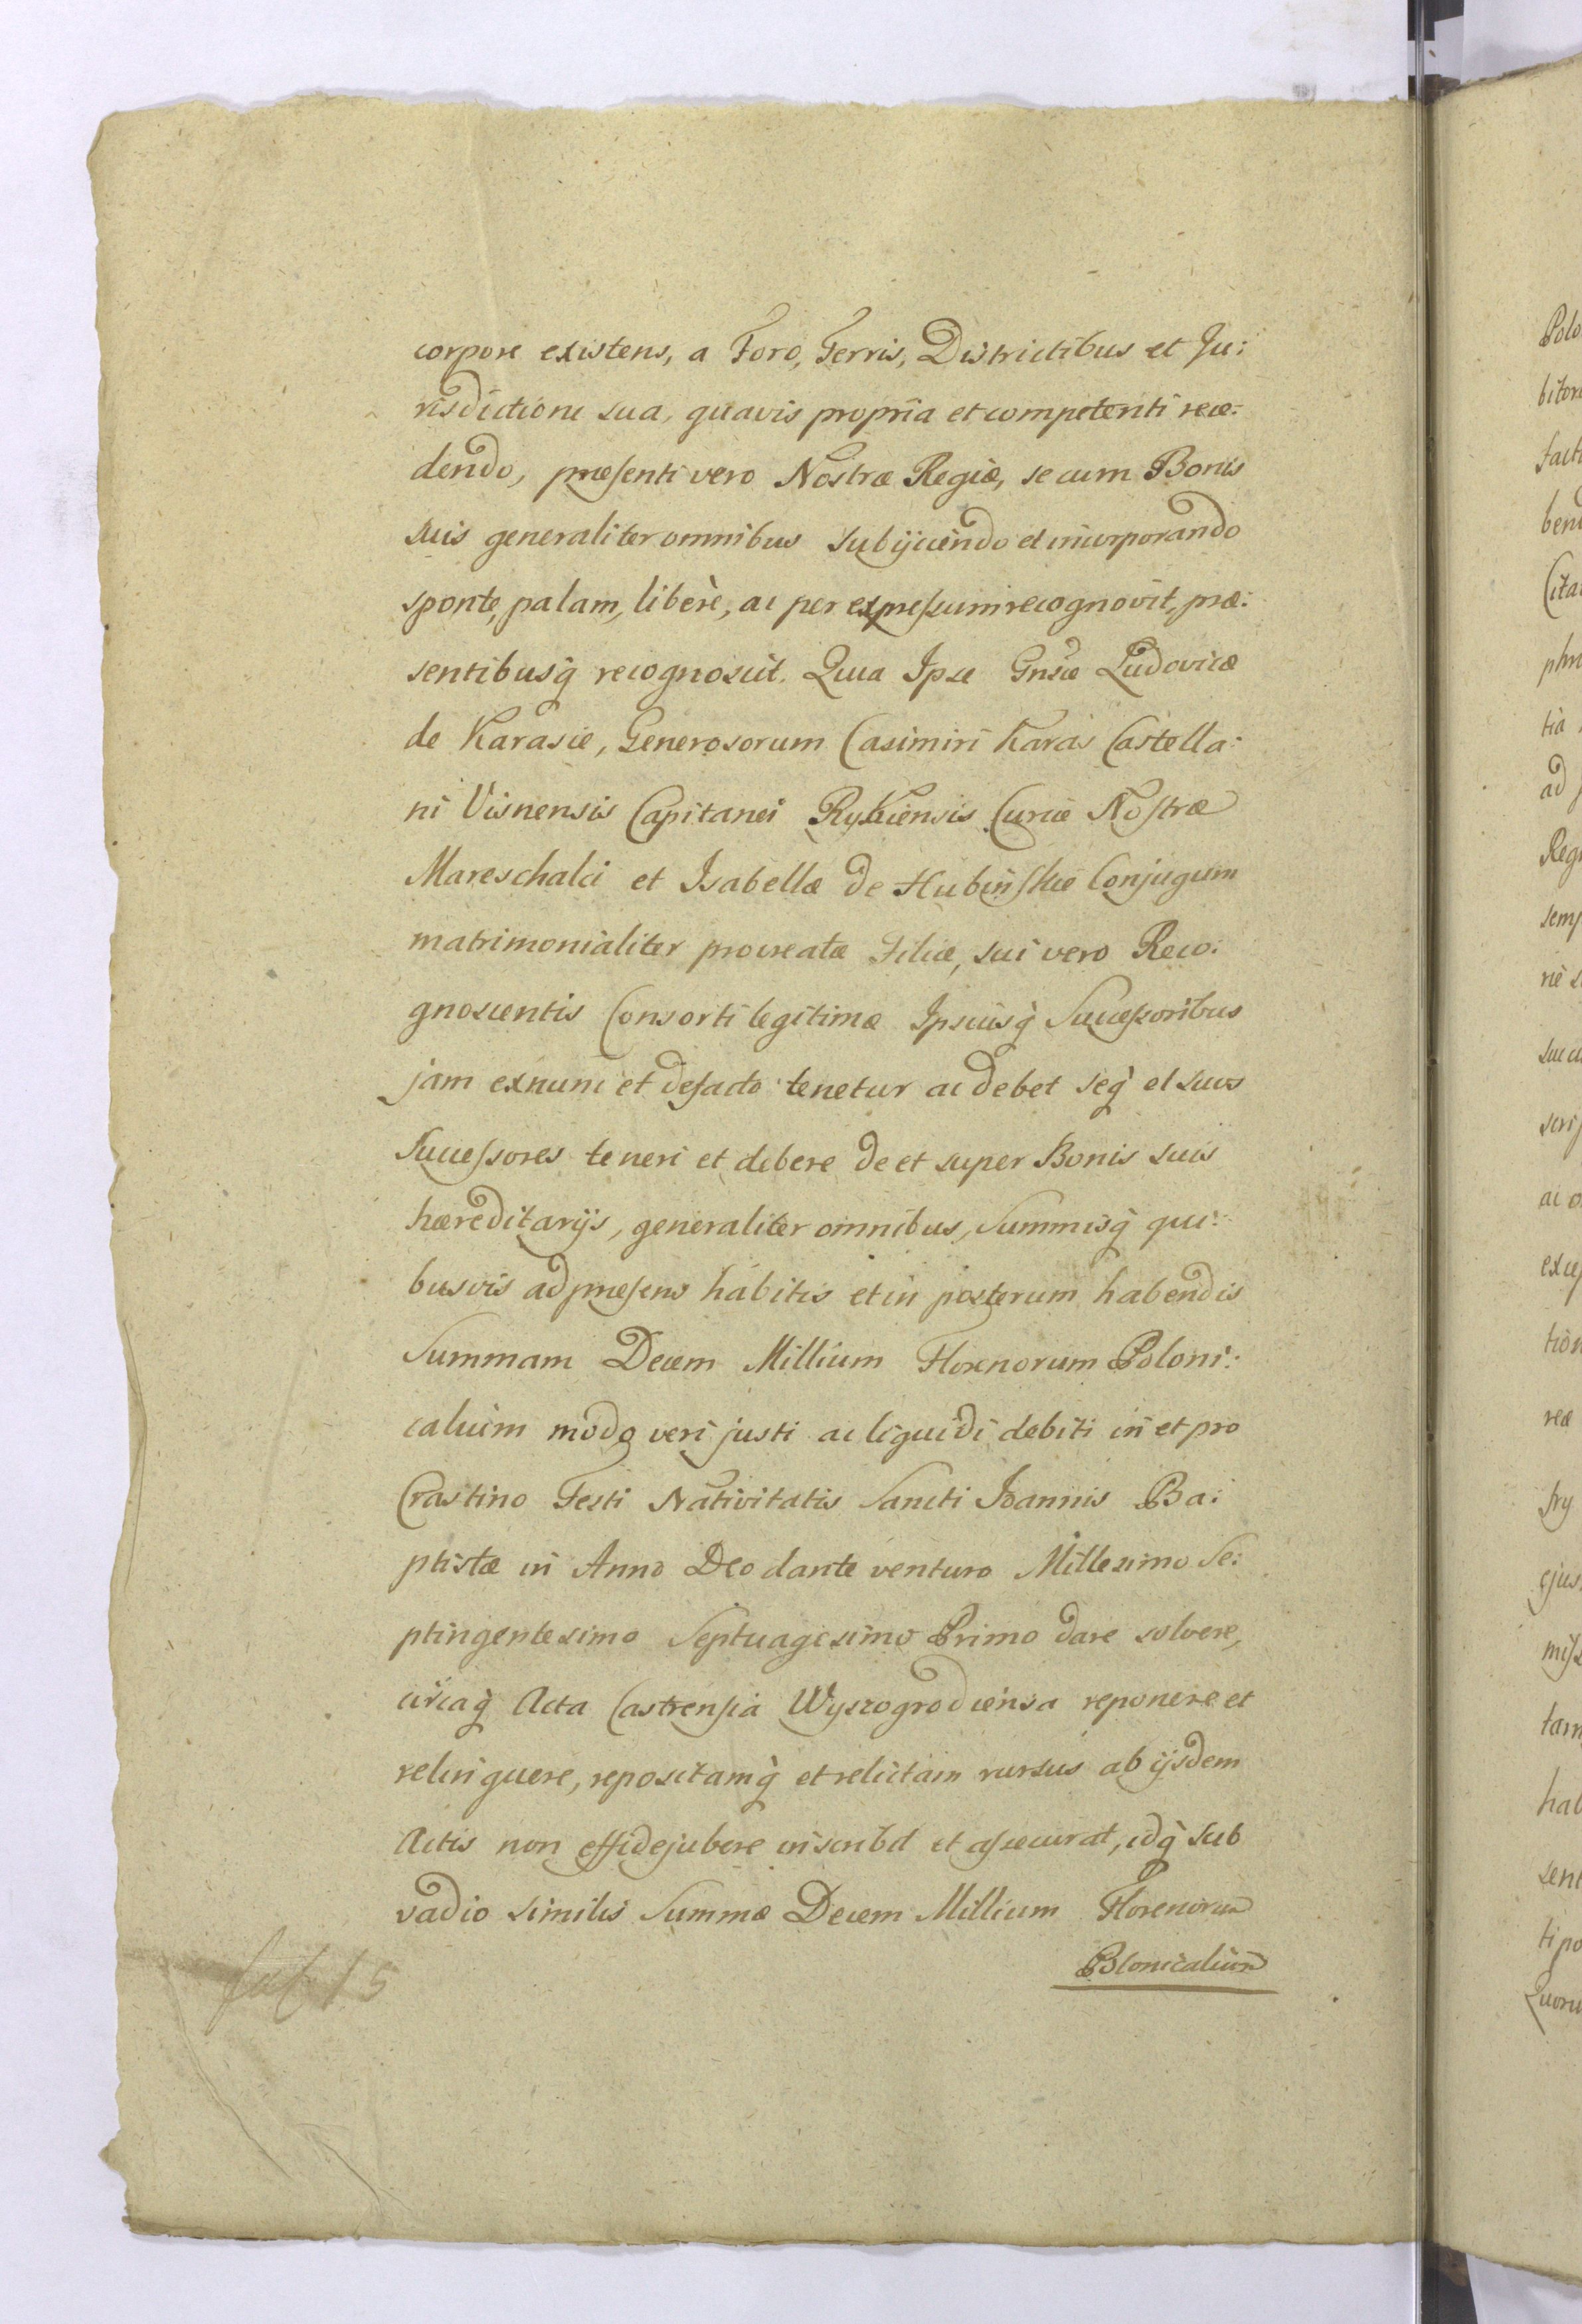 corpore existens, a Foro, Terris, Districtibus et Ju:
risdictione sua, quavis propria et competenti rece:
dendo, præsenti vero Nostræ Regiæ, se cum Bonis
suis generaliter omnibus subijciendo et incorporando
sponte, palam, liberè, ac per expressum recognovit, præ:
sentibusq̀ recognoscit. Quia Ipse Gnsæ Ludovicæ
de Karasie, Generosorum Casimiri Karaś Castella:
ni Visnensis Capitanei Rykiensis Curiæ Nostræ
Mareschalci et Isabellæ de Hubinskie Conjugum
matrimonialiter procreatæ Filiæ, sui vero Reco:
gnoscentis Consorti legitimæ Ipsiusq̀ Successoribus
jam exnunc et defacto tenetur ac debet seq̀ et suos
Successores teneri et debere de et super Bonis suis
hæreditarijs, generaliter omnibus, Summisq̀ qui:
busvis ad præsens habitis et in posterum habendis
Summam Decem Millium Florenorum Poloni:
calium modo veri justi ac liquidi debiti in et pro
Crastino Festi Nativitatis Sancti Joannis Ba:
ptistæ in Anno Deo dante venturo Millesimo Se:
ptingentesimo Septuagesimo Primo dare solvere,
circaq̀ Acta Castrensia Wyszogrodiensia reponere et
relinquere, repositamq̀ et relictam rursus ab ijsdem
Actis non effidejubere inscribit et assecurat, idq̀ sub
vadio similis Summæ Decem Millium Florenorum
Polonicalium
Polo
bitor
fact
ben
Cita
tia
ad
Reg
semp
scri
ac
exce
tion
ejus
tam
hab
sent
Quoru